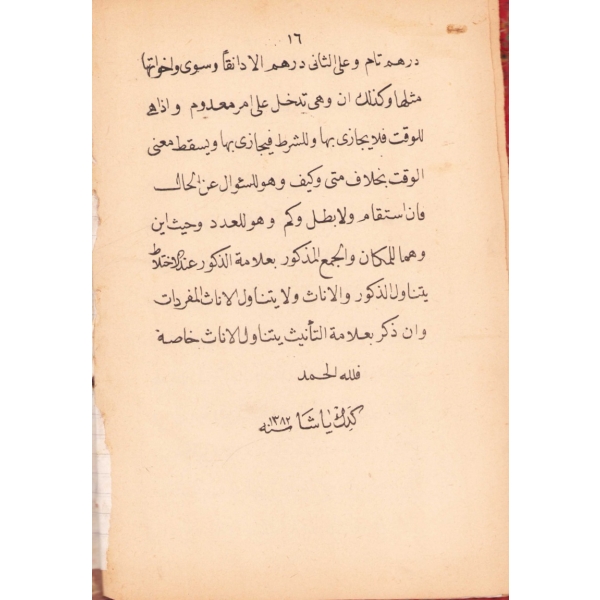 ١٦
درهم تام وعلى الثانى درهم الا دانقاً وسوى واخواتها
مثلها وكذلك ان وهى تدخل على امر معدوم واذا هى
للوقت فلا يجازى بها وللشرط فيجازى بها ويسقط معنى
الوقت بخلاف متى وكيف وهو للسؤال عن الحال
فان استقام ولا بطل وكم وهو للعدد وحيث اين
وهما للمكان والجمع المذكور بعلامة الذكور عند الاختلاط
يتناول الذكور والاناث ولا يتناول الاناث المفردات
وان ذكر بعلامة التأنيث يتناول الاناث خاصة
فلله الحمد
كدك پاشا
سنه ١٣٨٢